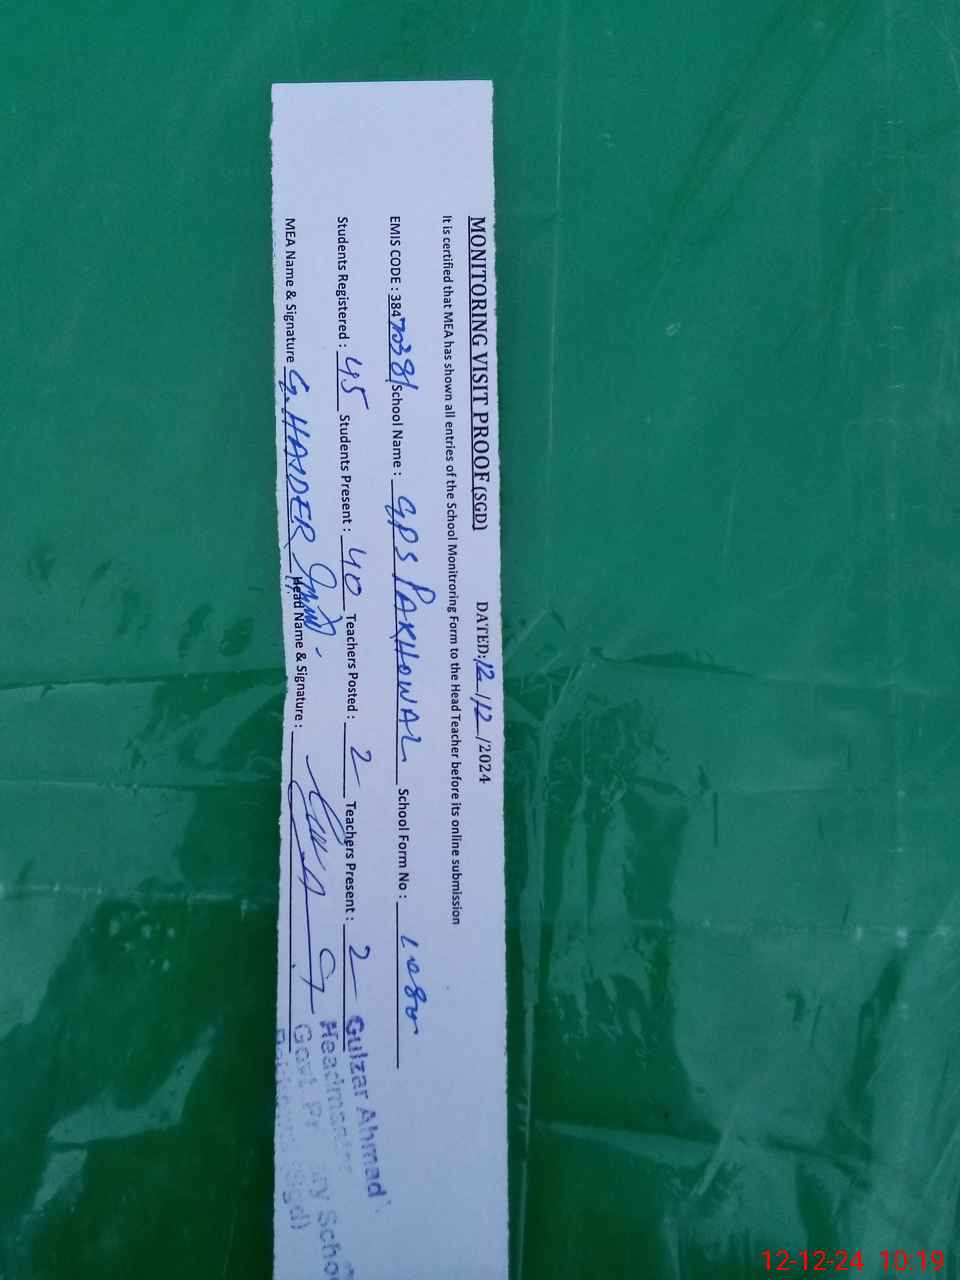 MONITORING VISIT PROOF (SGD) DATED: 12/12/2024
It is certified that MEA has shown all entries of the School Monitroring Form to the Head Teacher before its online submission
EMIS CODE : 38470381 School Name : GPS PAKHOWAL School Form No :
Students Registered : 45 Students Present : 40 Teachers Posted : 2 Teachers Present : 2
MEA Name & Signature G. HAIDER Head Name & Signature :
Gulzar Ahmad
Headmaster
Govt Pr ary Scho
(Sgd)
12-12-24 10:19